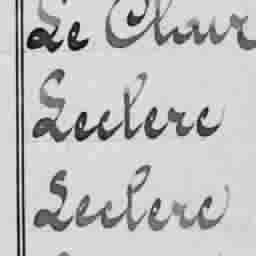 Le Clair
Leclerc
Leclerc